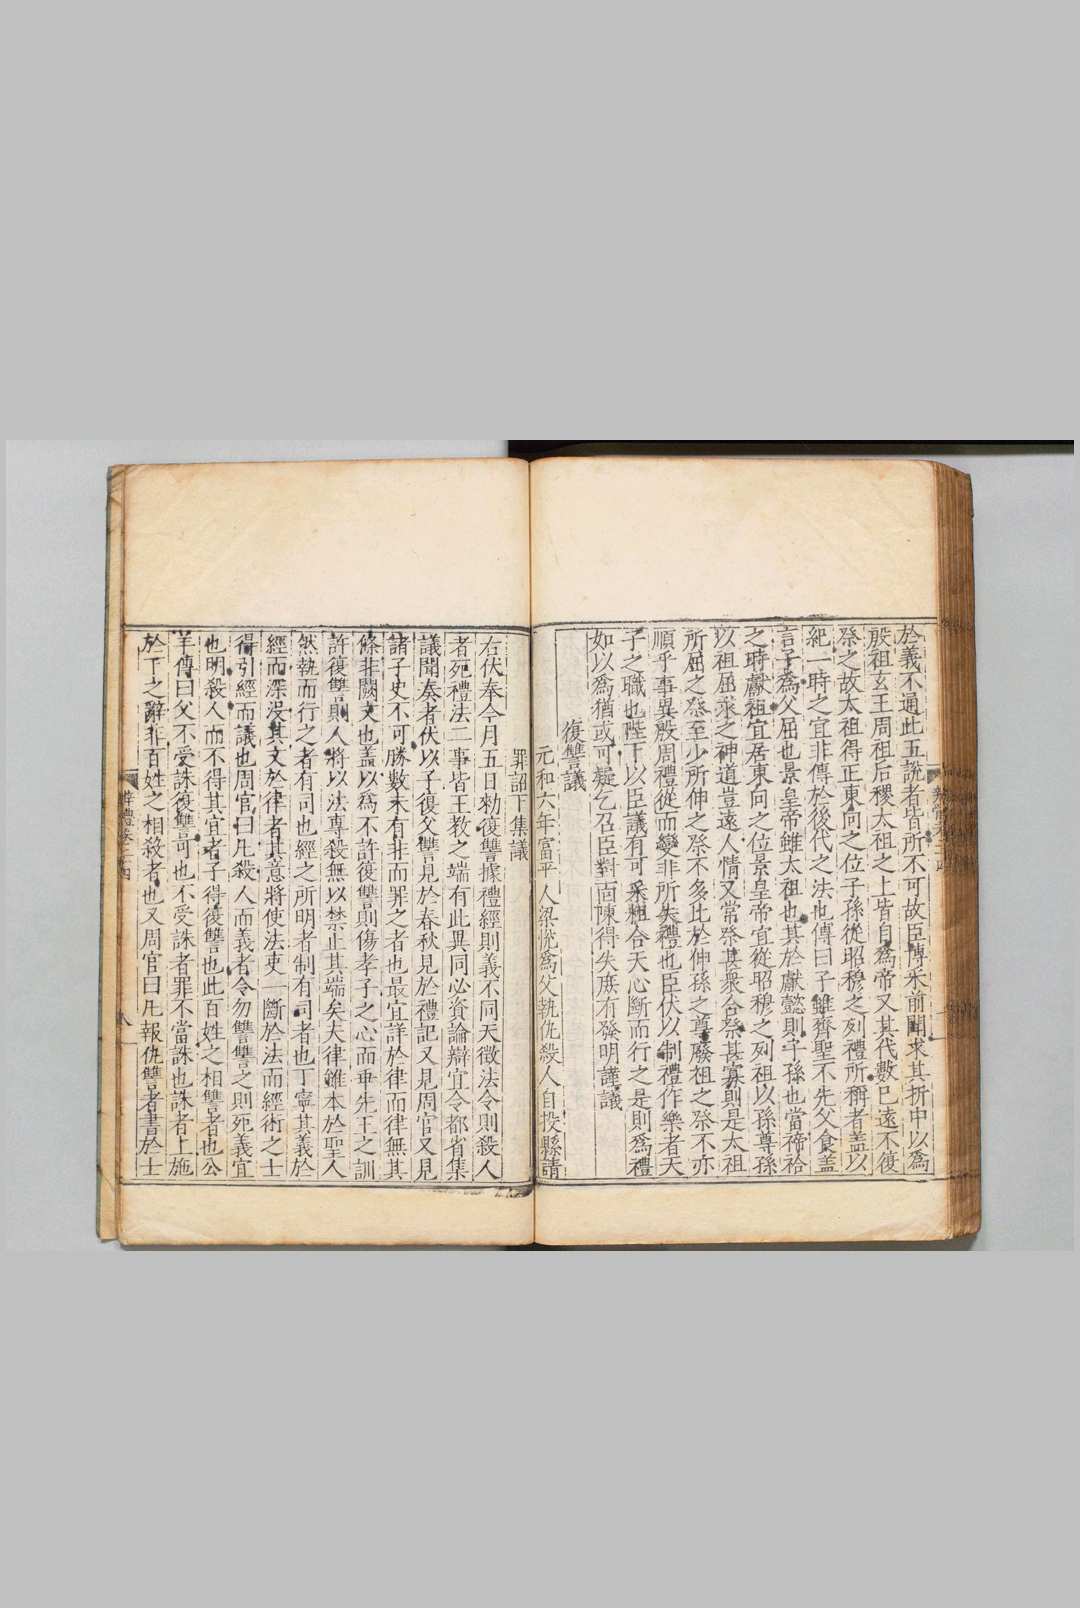 於義不通此五說者皆所不可故臣博采前聞求其折中以爲
殷祖玄王周祖后稷太祖之上皆自爲帝又其代數已遠不復
祭之故太祖得正東向之位子孫從昭穆之列禮所稱者蓋以
紀一時之宜非傳於後代之法也傳曰子雖齊聖不先父食蓋
言子爲父屈也景皇帝雖太祖也其於獻懿則子孫也當禘祫
之時獻祖宜居東向之位景皇帝宜從昭穆之列祖以孫尊孫
以祖屈求之神道豈遠人情又常祭甚衆合祭甚寡則是太祖
所屈之祭至少所伸之祭不多比於伸孫之尊廢祖之祭不亦
順乎事異殷周禮從而變非所失禮也臣伏以制禮作樂者天
子之職也陛下以臣議有可采粗合天心斷而行之是則爲禮
如以爲猶或可疑乞召臣對面陳得失庶有發明謹議
復讐議
元和六年富平人梁悅爲父執仇殺人自投縣請
罪詔下集議
右伏奉今月五日勑復讐據禮經則義不同天徵法令則殺人
者死禮法二事皆王教之端有此異同必資論辯宜令都省集
議聞奏者伏以子復父讐見於春秋見於禮記又見周官又見
諸子史不可勝數未有非而罪之者也最宜詳於律而律無其
條非闕文也蓋以爲不許復讐則傷孝子之心而乖先王之訓
許復讐則人將以法專殺無以禁止其端矣夫律雖本於聖人
然執而行之者有司也經之所明者制有司者也丁寧其義於
經而深沒其文於律者其意將使法吏一斷於法而經術之士
得引經而議也周官曰凡殺人而義者令勿讐讐之則死義宜
也明殺人而不得其宜者子得復讐也此百姓之相讐者也公
羊傳曰父不受誅復讐可也不受誅者罪不當誅也誅者上施
於下之辭非百姓之相殺者也又周官曰凡報仇讐者書於士